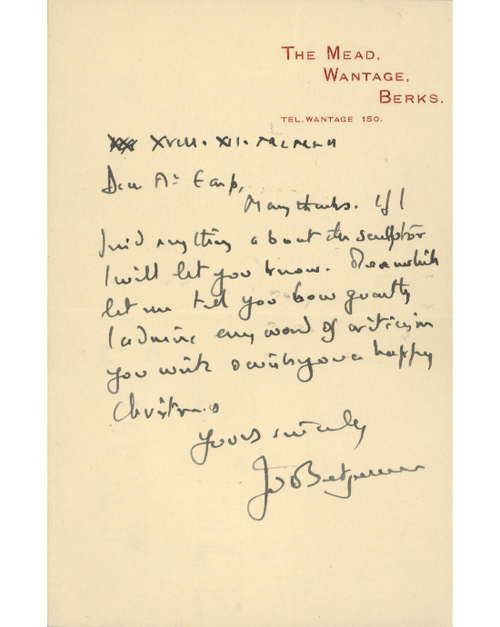 THE MEAD,
WANTAGE,
BERKS.
TEL. WANTAGE 150.
XVIII. XII.
Dear Mr Earp,
Many thanks. If I
find anything about the sculptor
I will let you know. Meanwhile
let me tell you how greatly
I admire every word of criticism
you write & wish you a happy
Christmas
Yours sincerely
John Betjeman